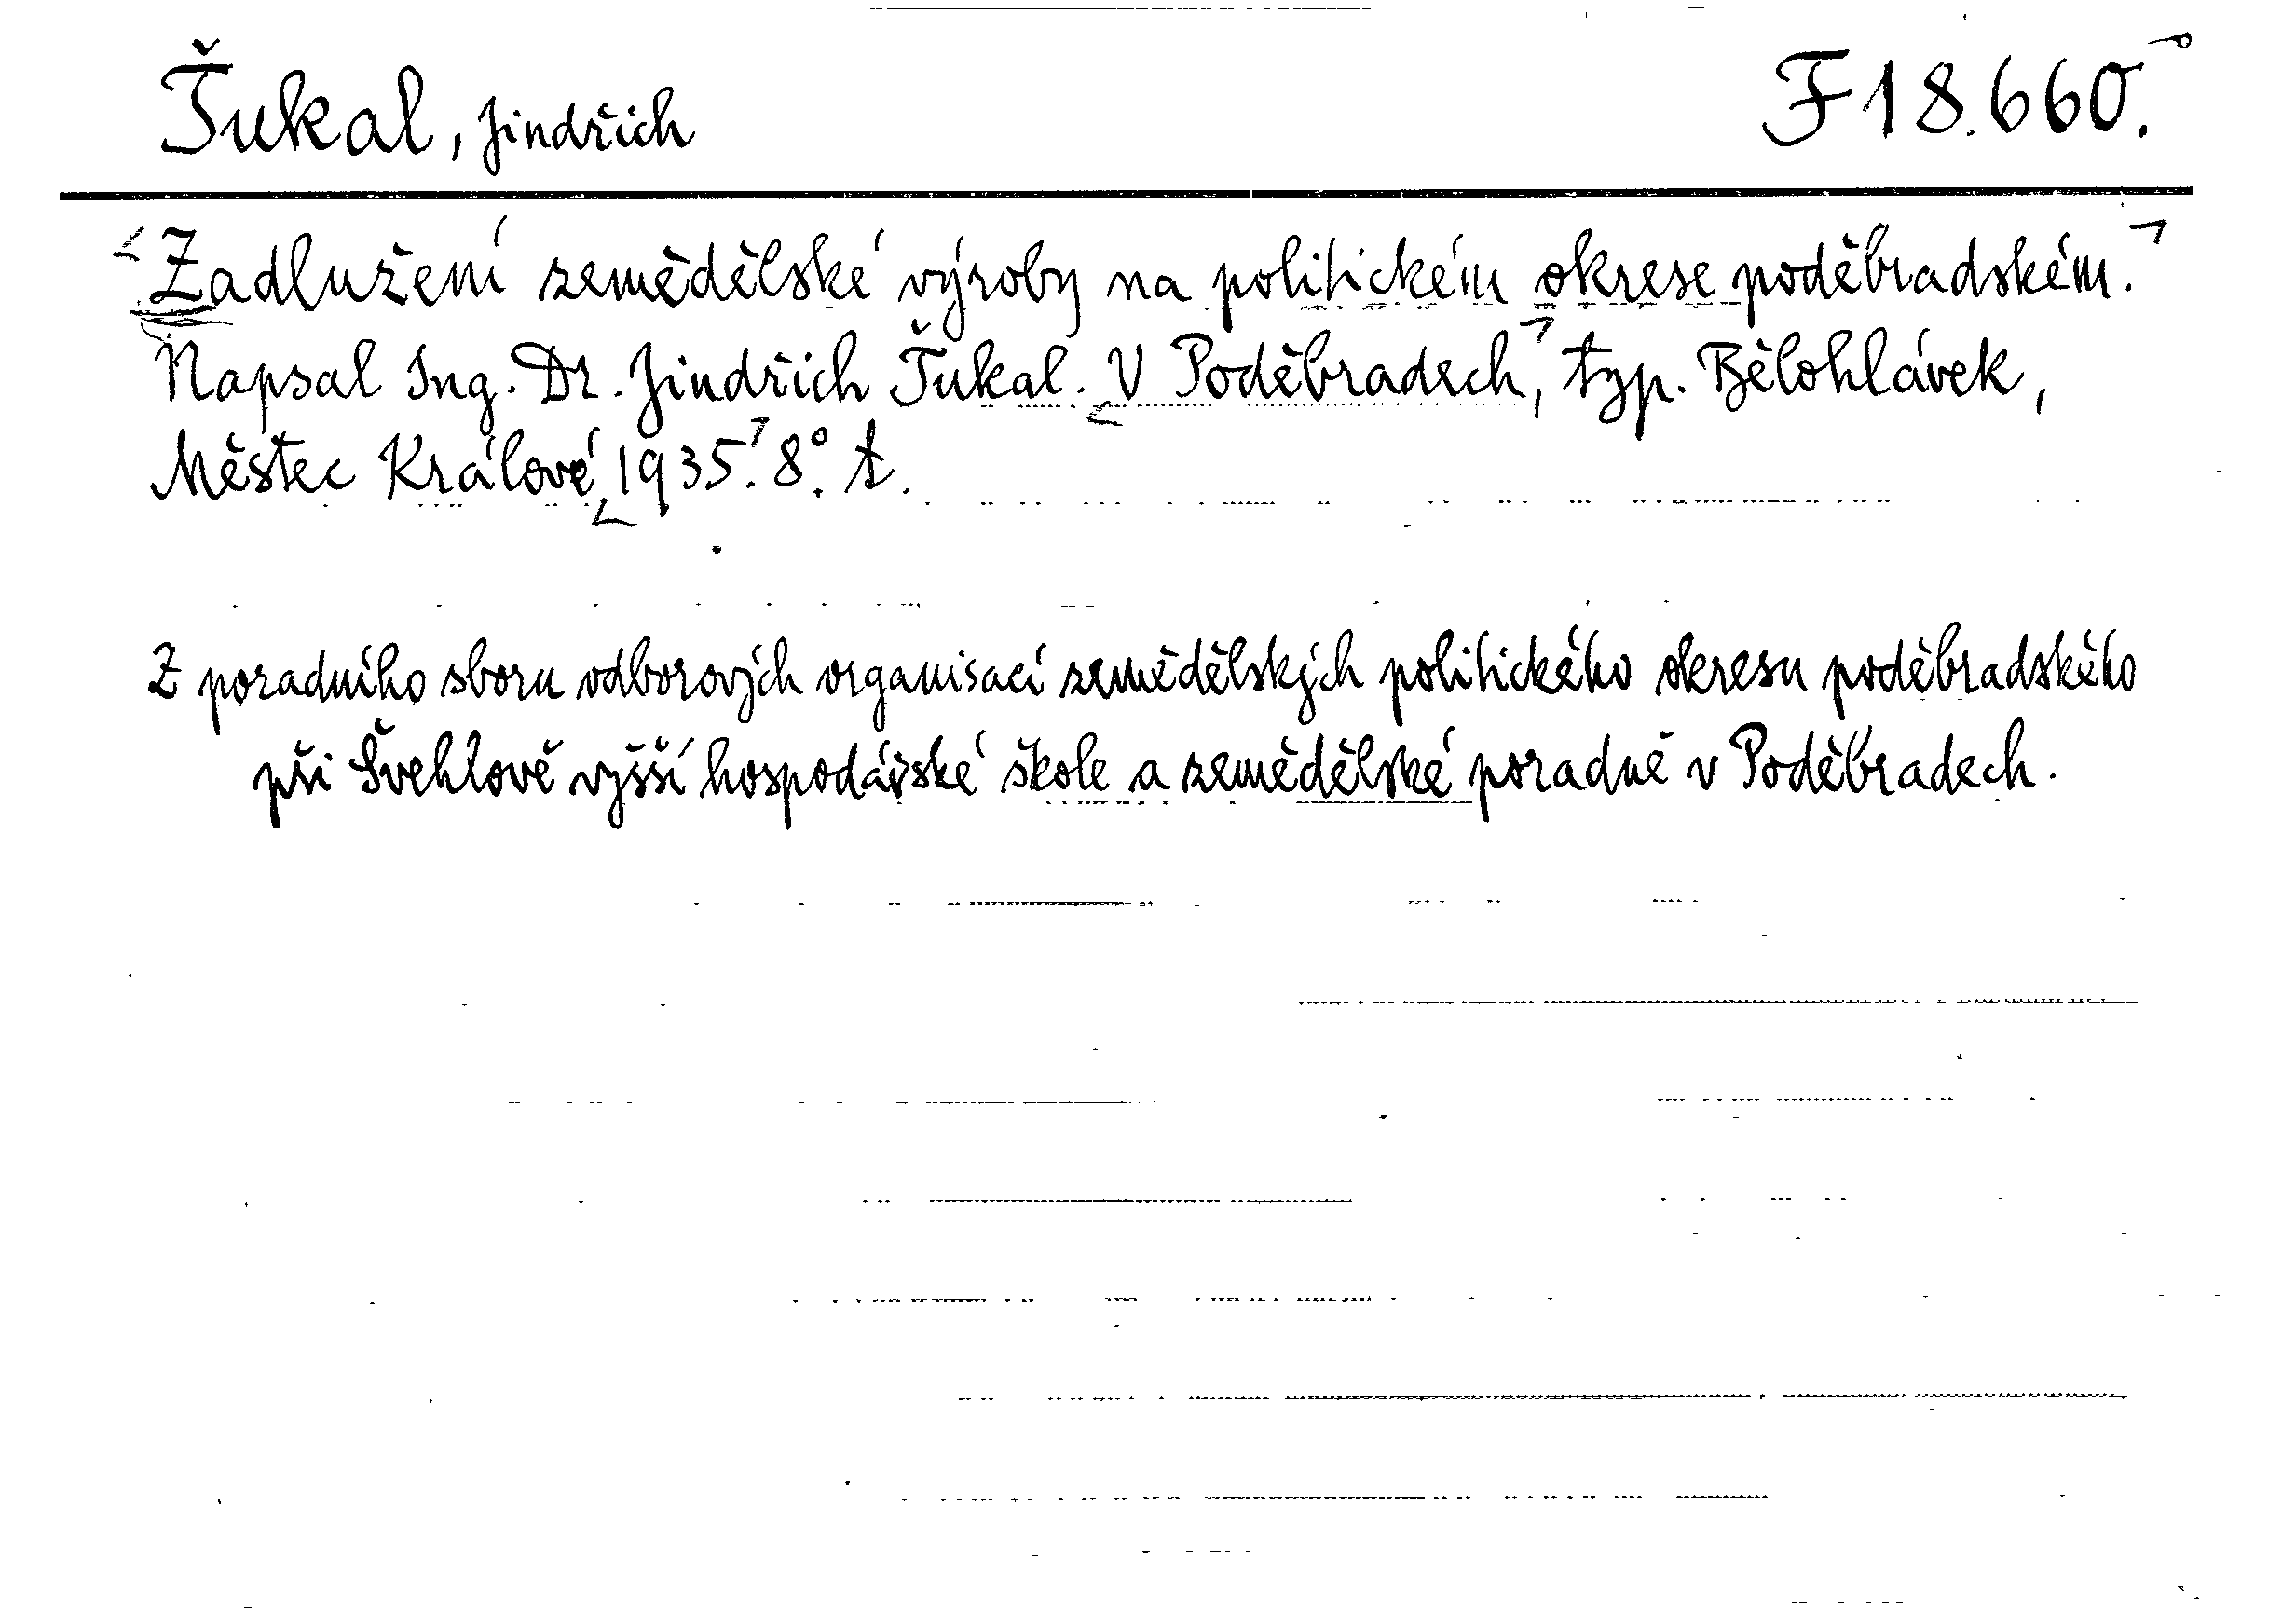 Ťukal, Jindřich F 18.660.
Zadlužení zemědělské výroby na politickém okrese poděbradském.
Napsal Ing. Dr. Jindřich Ťukal. V Poděbradech, typ. Bělohlávek,
Městec Králové, 1935. 8°. t.
Z poradního sboru odborových organisací zemědělských politického okresu poděbradského
při Švehlově vyšší hospodářské škole a zemědělské poradně v Poděbradech.